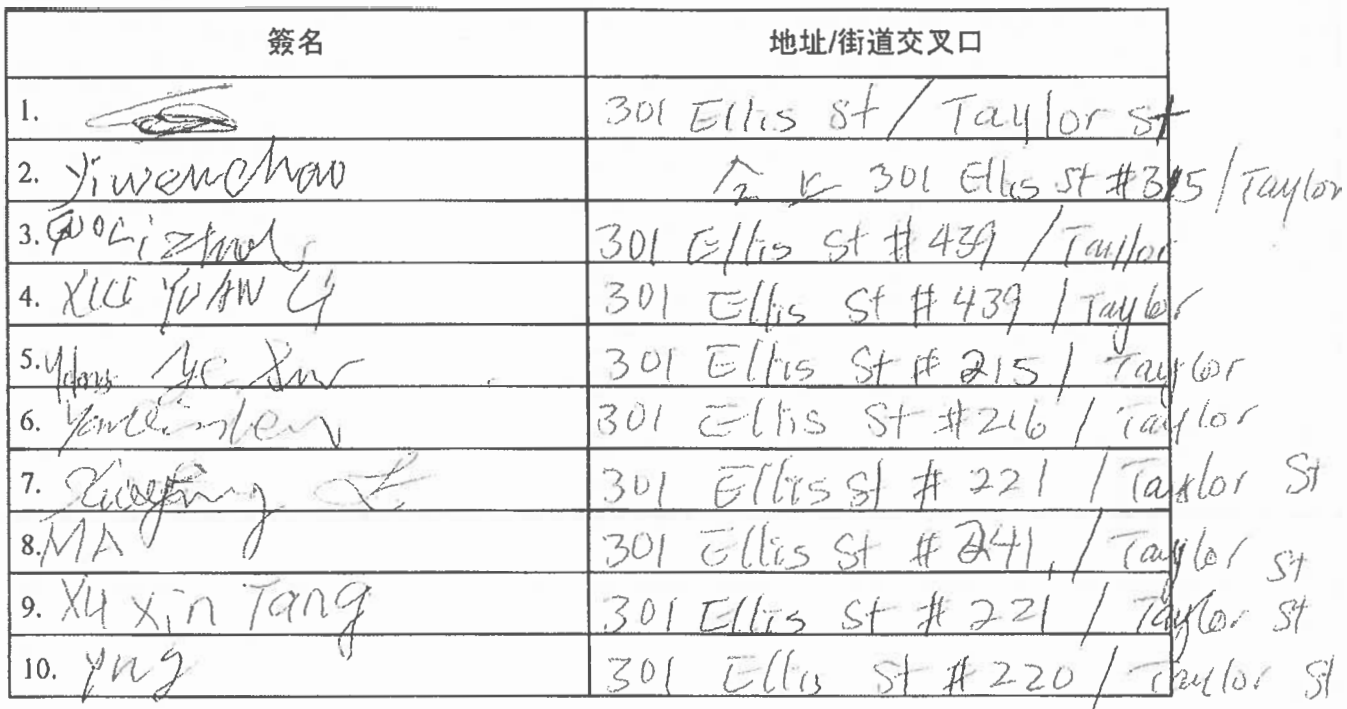 簽名 地址/街道交叉口
1. 301 Ellis St / Taylor St
2. Yiwen Chao 301 Ellis St #315 / Taylor
3. 301 Ellis St # 439 / Taylor
4. XIU YUAN LI 301 Ellis St # 439 / Taylor
5. 301 Ellis St # 215 / Taylor
6. 301 Ellis St #216 / Taylor
7. 301 Ellis St # 221 / Taylor St
8. MA 301 Ellis St # 241, / Taylor St
9. Xu Xin Tang 301 Ellis St # 221 / Taylor St
10. 301 Ellis St # 220 / Taylor St